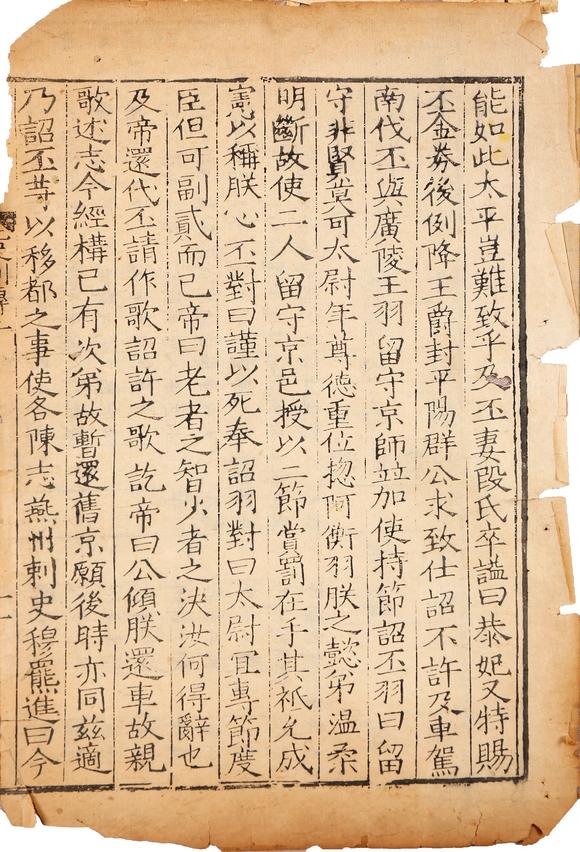 能如此太平豈難致乎及丕妻段氏卒謚曰恭妃又特賜
丕金券後例降王爵封平陽群公求致仕詔不許及車駕
南伐丕與廣陵王羽留守京師並加使持節詔丕羽曰留
守非賢莫可太尉年尊德重位揔阿衡羽朕之懿弟温柔
明斷故使二人留守京邑授以二節賞罰在手其祇允成
憲以稱朕心丕對曰謹以死奉詔羽對曰太尉宜專節度
臣但可副貳而已帝曰老者之智少者之決汝何得辭也
及帝還代丕請作歌詔許之歌訖帝曰公傾朕還車故親
歌述志今經構已有次弟故暫還舊京願後時亦同兹適
乃詔丕等以移都之事使各陳志燕州刺史穆羆進曰今